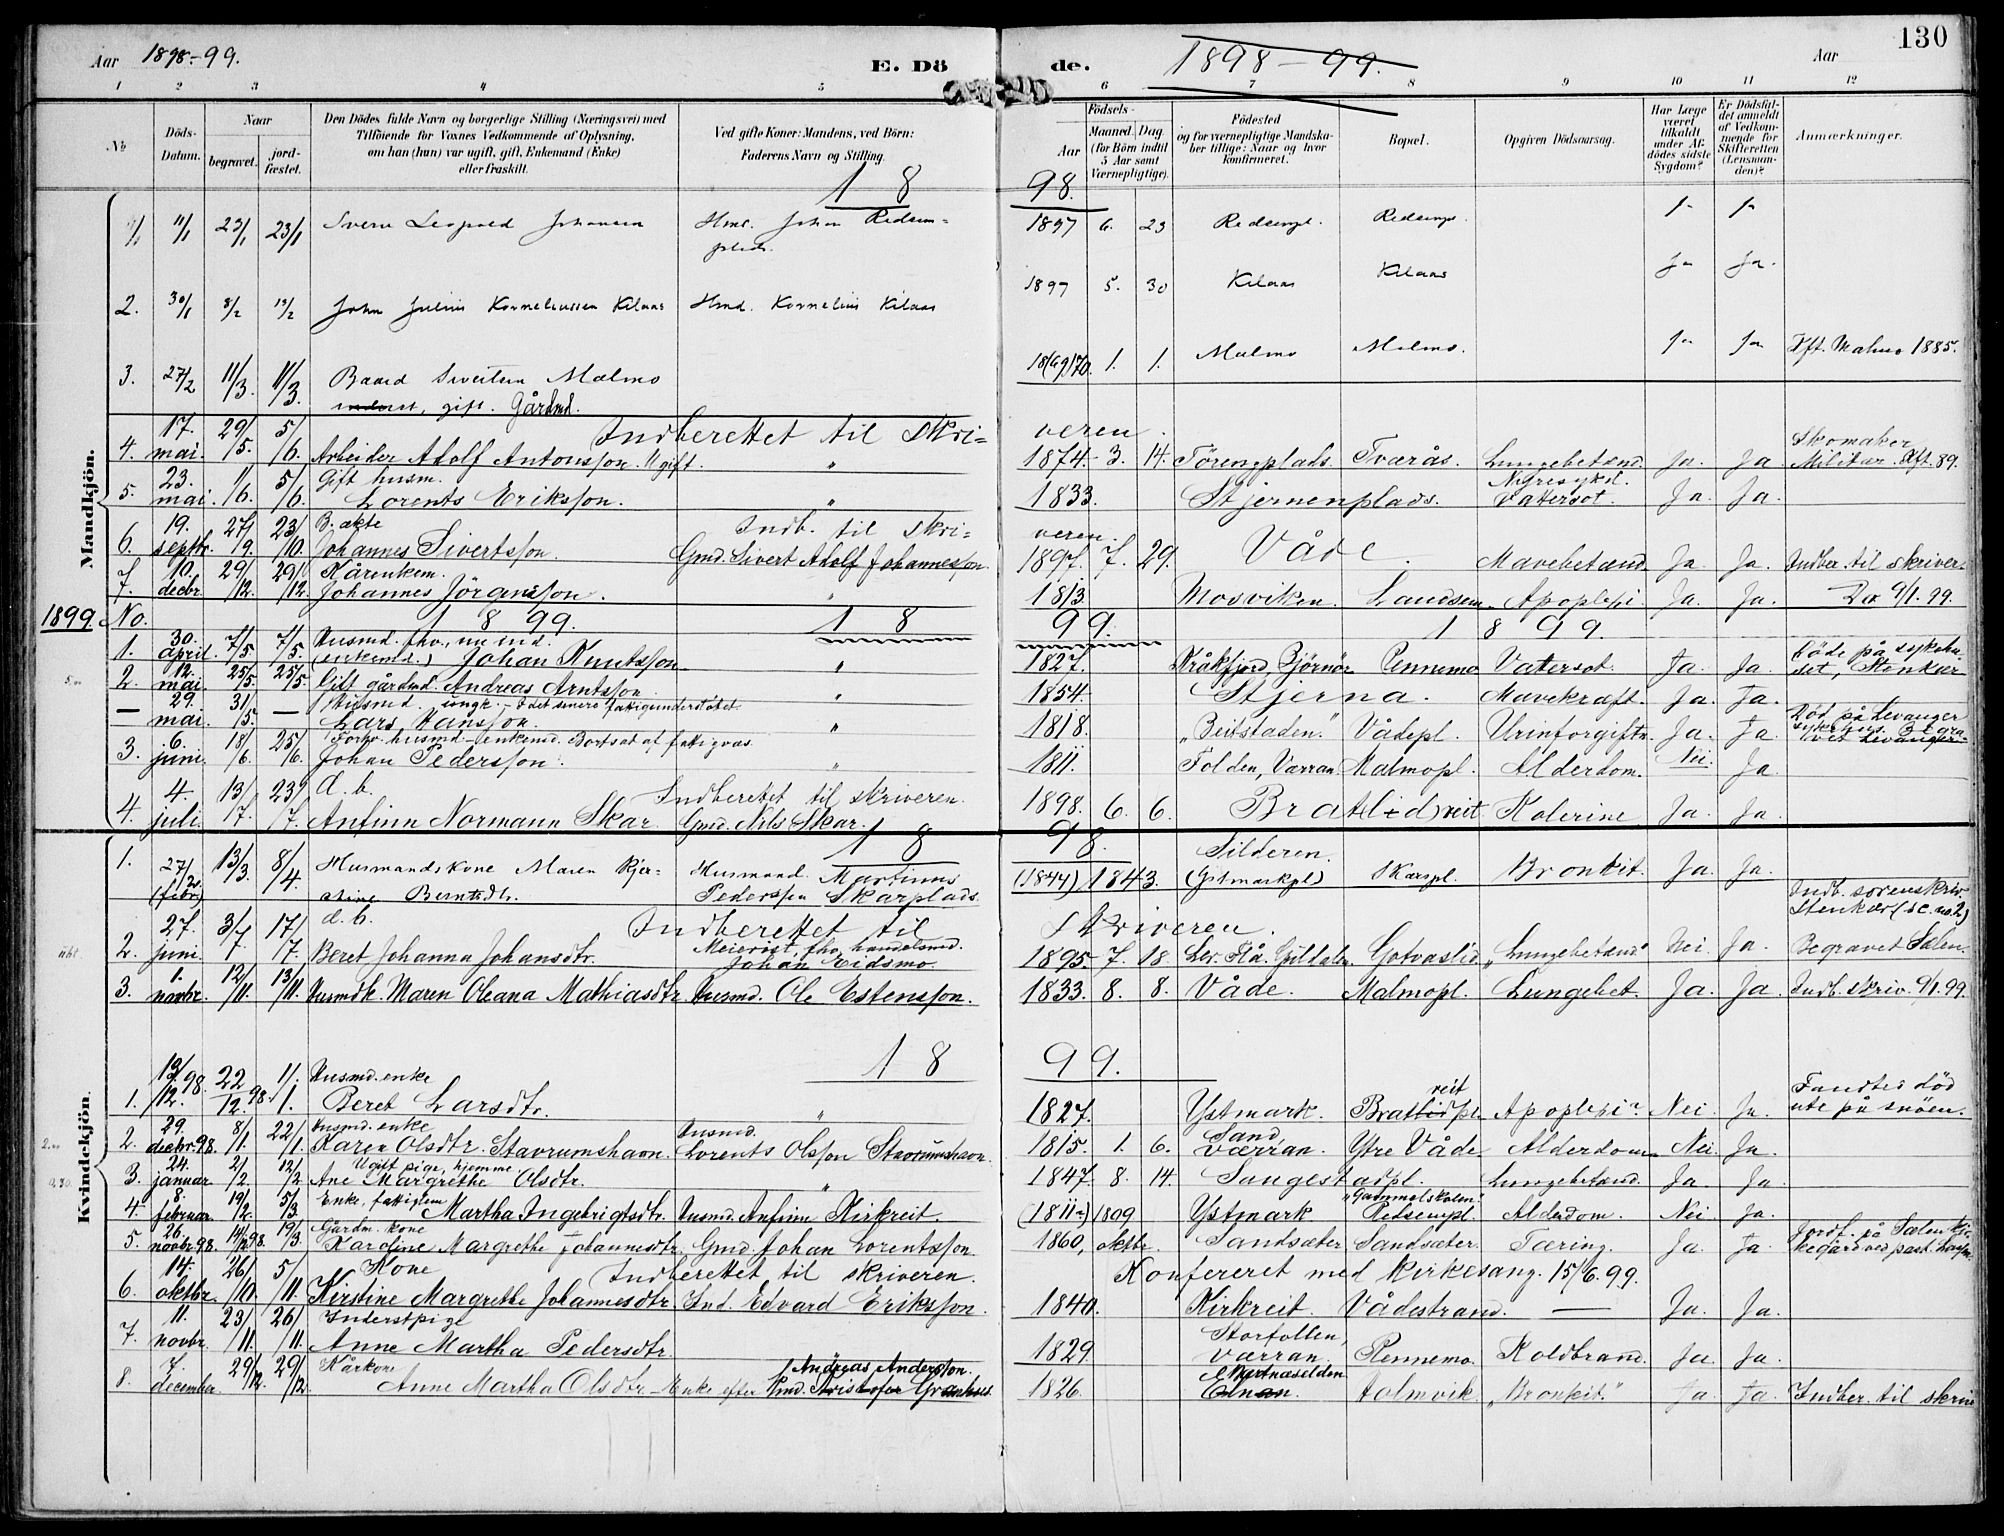 Aar 1898-99.
E. Döde.
1898-99.
Aar
130
1 2 3 4 5 6 7 8 9 10 11 12
No
Döds-Datum.
Naar
begravet.
jord-fæstet.
Den Dödes fulde Navn og borgerlige Stilling (Næringsvei) med
Tilföiende for Voxnes Vedkommende af Oplysning,
om han (hun) var ugift, gift, Enkemand (Enke)
eller fraskilt.
Ved gifte Koner: Mandens, ved Börn:
Faderens Navn og Stilling.
Födsels-
Aar
Maaned. Dag.
(for Börn indtil
5 Aar samt
Værnepligtige).
Födested
og for værnepligtige Mandska-
ber tillige: Naar og hvor
konfirmeret.
Bopæl.
Opgiven Dödsaarsag.
Har Læge
været
tilkaldt
under Af-
dödes sidste
Sygdom?
Er Dödsfal-
det anmeldt
af Vedkom-
mende for
Skifteretten
(Lensman-
den)?
Anmærkninger.
Mandkjön.
1898.
11/1 23/1 23/1 Sverre Leopold Johansen Hmd. Johan Redsem-plads. 1897 6. 23 Redsempl. Redsempl. Ja Ja
2. 30/1 8/2 13/2 John Julius Korneliussen Kilaas Hmd. Kornelius Kilaas 1897 5. 30 Kilaas Kilaas Ja Ja.
3. 27/2 11/3 11/3 Baard Sivertsen Malmo 18(69)70. 1. 1. Malmo Malmo. Ja Ja Kft. Malmo 1885.
gift. Gårdmd.
Indberettet til skriveren.
4. 17. mai. 29/5. 5/6. Arbeider Adolf Antonsson. gift. " 1874. 3. 14. Törenplads. Tværås. Lungebetænd. Ja. Ja Skomaker Militær. Kft. 89.
5. 23. mai. 1/6. 5/6. Gift husm. Lorents Eriksson. " 1833. Stjernenplads. Nyresykd. Vatersot. Ja. Ja.
Indb. til skriveren.
6. 19. septbr. 27/9. 23/10. B. ekte Johannes Sivertsson. Gmd. Sivert Adolf Johannesson. 1897. 7. 29. Våde. Mavebetænd. Ja Ja. Indber. til skriver-
7. 10. decbr. 29/12. 29/12. Kårenkem. Johannes Jörgensson. " 1813. Mosviken. Landsem. Apoplexi. Ja. Ja. 9/1. 99.
1899. No. 1899. 1899. 1899.
1. 30. april. 7/5 7/5. Husmd. fhv., nu ind. (enkemd.) Johan Knutsson " 1827. Kråkfjord, Björnör Rennemo Vatersot. Ja. Ja. Döde på sykehu-set, Stenkær
2. 12. mai 25/5. 25/5. Gift gårdmd. Andreas Arntsson. " 1854. Stjerna. Mavekræft. Ja. Ja.
— 29. mai. 31/5. — Husmd. ungk. - i det senere fattigunderstötet. Lars Hansson. " 1818. "Beitstaden". Vådepl. Urinforgiftn. Ja. Ja. Död på Levanger sykehus. Begra-vet Levanger
3. 6. juni. 18/6. 25/6. Forhv. husmd - enkemd. Bortsat af fattigvæs. Johan Pedersson. " 1811. Folden, Værran. Malmopl. Alderdom. Nei. Ja.
4. 4. juli. 13/7. 23/7. d. b. Indberettet til skriveren.
Anfinn Normann Skar. Gmd. Nils Skar. 1898. 6. 6. Bratlid)reit. Kolerine. Ja. Ja.
Kvindekjön.
1898.
1. 27/2 (febr.) 13/3. 8/4. Husmandskone Maren Kjer-stine Berntsdtr. Husmand Martinus Pederssen Skarplads. (1844) 1843. Silderen. (Ystmarkpl) Skarpl. Bronkit. Ja. Ja.
Indberettet til skriveren. Indb. sorenskriv. Stenkær (se no. 2)
2. 27. juni. 3/7. 17/7. d. b. Beret Johanna Johansdtr. Meierist, fhv. handelsmd. Johan Eidsmo. 1895. 7. 18. Ler. Flå. Guldalen Gotvaslid "Lungebetænd" Nei Ja. Begravet Sælen.
3. 1. novbr. 12/11. 13/11. Husmdk. Maren Oleana Mathiasdtr. Husmd. Ole Estensson. 1833. 8. 8. Våde. Malmopl. Lungebet. Ja. Ja. Indb. skriv. 9/1. 99.
1899.
1. 13/12. 98. 22/12. 98. 1/1. Husmd. enke Beret Larsdtr. " 1827. Ystmark. Bratlidpl. reit Apoplexi Nei Ja. Fandtes död ute på snöen.
2. 29. decbr 98. 8/1. 22/1. Husmd. enke Karen Olsdtr. Stavrumshavn. Husmd. Lorents Olsson Stavrumshavn. 1815. 1. 6. Sand, Værran. Ytre Våde Alderdom Nei. Ja.
3. 24. januar. 2/2. 12/2. Ugift pige, hjemme. Ane Margrethe Olsdtr. " 1847. 8. 14. Sangestadpl. Lungebetænd. Ja. Ja.
4. 8. februar. 19/2. 5/3. Enke. fattiglem Martha Ingebrigtsdtr. Husmd. Anfinn Kirkreit. (1811) 1809 Ystmark "Gammelskolen" Redsempl. Alderdom. Nei Ja.
5. 26. novbr 98. 14/2 98. 19/3. Gårdm. kone Karoline Margrethe Johannesdtr. Gmd. Johan Lorentsson. 1860, oktbr. Sandsæter Sandsæter. Tæring. Ja. Ja.
Indberettet til skriveren. Konfereret med kirkesang. 15/6. 99.
6. 14. oktbr. 26/10. 5/11. Kone Kirstine Margrethe Johannesdtr. Ind. Edvard Eriksson. 1840. Kirkreit. Vådestrand. — Ja. Ja.
7. 11. novbr. 23/11. 26/11. Inderstpige Anne Martha Pedersdtr. 1829. Storfollen, Værran. Rennemo. Koldbrand. Ja. Ja.
8. 7. december 29/12. 29/12. Kårkone Anne Martha Olsdtr - Enke efter Gmd. Andreas Andersson. 1826. Holmvik. "Bronkit." Ja. Ja. Indber. til skriv